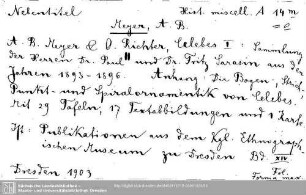 Nebentitel Hist. miscell. A 14 m
= e
Meyer, A. B.
A. B. Meyer & O. Richter, Celebes I: Sammlung
der Herren Dr. Paul und Dr. Fritz Sarasin aus den
Jahren 1893-1896. Anhang: Die Bogen-, Strich-,
Punkt- und Spiralornamentik von Celebes.
Mit 29 Tafeln, 17 Textabbildungen und 1 Karte
Ist: Publikationen aus dem Kgl. Ethnograph-
ischen Museum zu Dresden Bd. XIV
Dresden 1903 Fol.
Forma max.